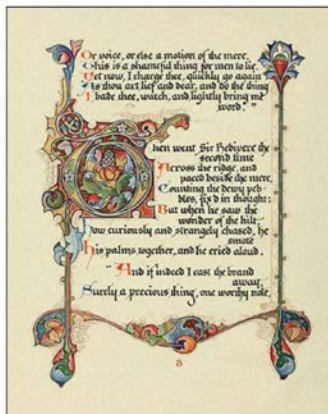 Or voice, or else a motion of the mere.
This is a shameful thing for men to lie.
Yet now, I charge thee, quickly go again
As thou art lief and dear, and do the thing
I bade thee, watch, and lightly bring me
word."
Then went Sir Bedivere the
second time
Across the ridge, and
paced beside the mere,
Counting the dewy peb-
bles, fix'd in thought;
But when he saw the
wonder of the hilt,
How curiously and strangely chased, he
smote
His palms together, and he cried aloud.
"And if indeed I cast the brand
away,
Surely a precious thing, one worthy note,